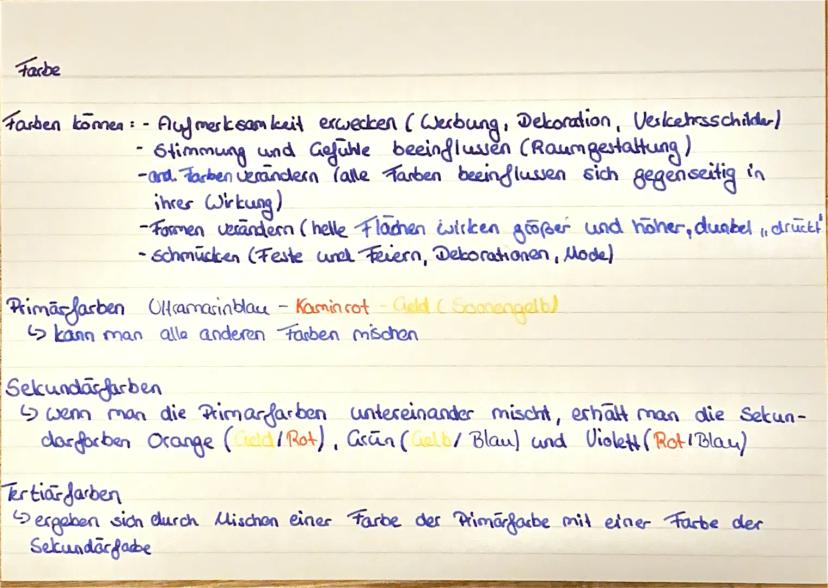 Farbe
Farben können: - Aufmerksamkeit erwecken (Werbung, Dekoration, Verkehrsschilder)
- Stimmung und Gefühle beeinflussen (Raumgestaltung)
- and. Farben verändern (alle Farben beeinflussen sich gegenseitig in
ihrer Wirkung)
- Formen verändern (helle Flächen wirken größer und höher, dunkel „drückt“
- schmücken (Feste und Feiern, Dekorationen, Mode)
Primärfarben Ultramarinblau - Kaminrot - Geld (Sonnengelb)
↳ kann man alle anderen Farben mischen
Sekundärfarben
↳ wenn man die Primärfarben untereinander mischt, erhält man die Sekun-
därfarben Orange (Geld/Rot), Grün (Gelb/Blau) und Violett (Rot/Blau)
Tertiärfarben
↳ ergeben sich durch Mischen einer Farbe der Primärfarbe mit einer Farbe der
Sekundärfabe